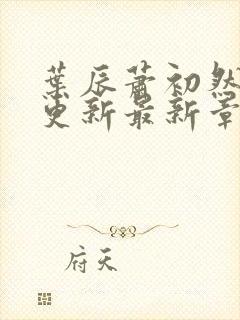 葉辰蕭初然
更新最新章
府天